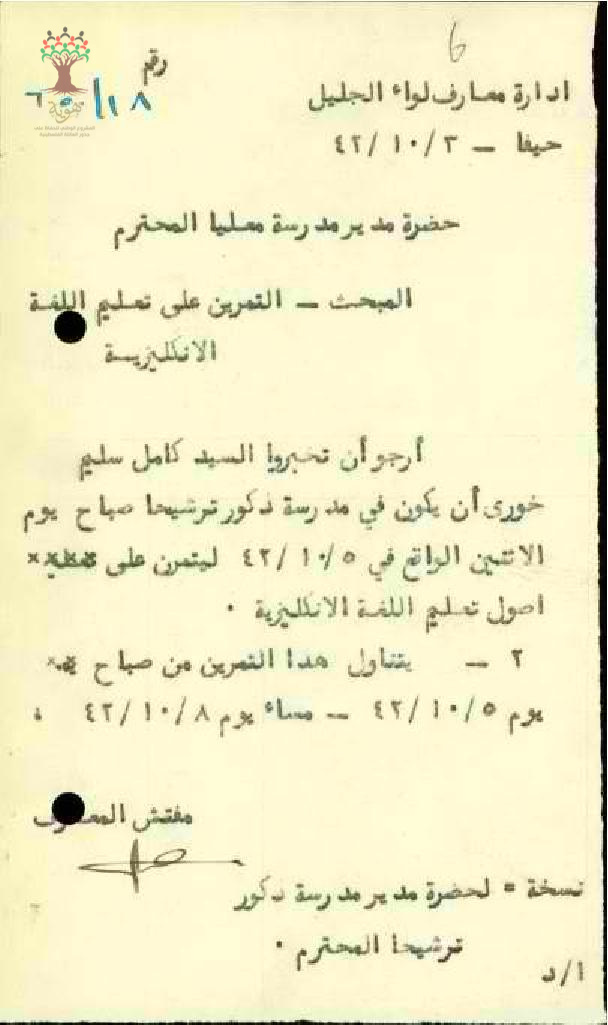 6
رقم
٦٥/١٨
هوية
ادارة معارف لواء الجليل
حيفا — ٤٢/١٠/٣
حضرة مدير مدرسة معليا المحترم
المبحث — التمرين على تعليم اللغة
الانكليزية
أرجو أن تخبروا السيد كامل سليم
خورى أن يكون في مدرسة ذكور ترشيحا صباح يوم
الاثنين الواقع في ٤٢/١٠/٥ ليتمرن على
اصول تعليم اللغة الانكليزية ٠
٢ — يتناول هذا التمرين من صباح
يوم ٤٢/١٠/٥ — مساء يوم ٤٢/١٠/٨ ٠
مفتش المعارف
نسخة = لحضرة مدير مدرسة ذكور
ترشيحا المحترم ٠
ا/د